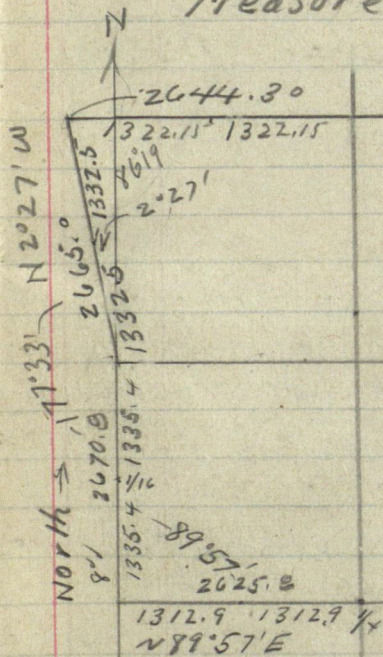 Measure
N
2644.30
1322.15 1322.15
N 2°27' W
2665.0
1332.5
1332.5
2°27'
177°33'
North
2670.8
1335.4
1/16
1335.4
89°57'
2625.8
1312.9 1312.9 1/4
N89°57'E